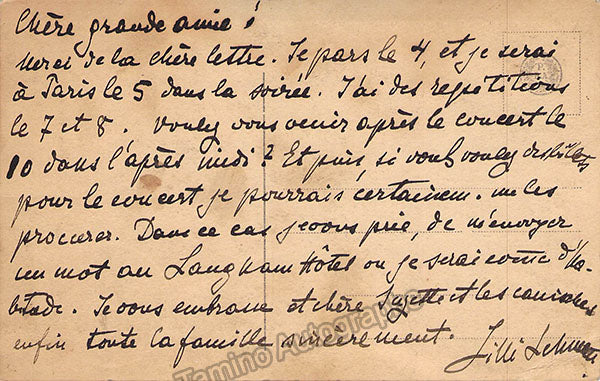 Chère grande amie!
Merci de la chère lettre. Je pars le 4, et je serai
à Paris le 5 dans la soirée. J'ai des repetitions
le 7 et 8. Voulez vous venir après le concert le
10 dans l'après midi? Et puis, si vous voulez des billets
pour le concert je pourrais certainem. me les
procurer. Dans ce cas je vous prie, de m'envoyer
un mot au Langham Hôtel ou je serai comme d'ha-
bitude. Je vous embrasse et chère Suzette et les
enfin toute la famille sincèrement. Lilli Lehmann
Tamino Autographs